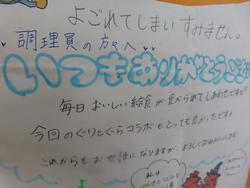 よごれてしまいすみません。
調理員の方へ
いつもありがとうござい
毎日おいしい給食が食べられてしあわせです♡
今回のぐりとぐらコラボもとっても良かったです。
これからもお世話になりますが、よろしくおねがいします
私は